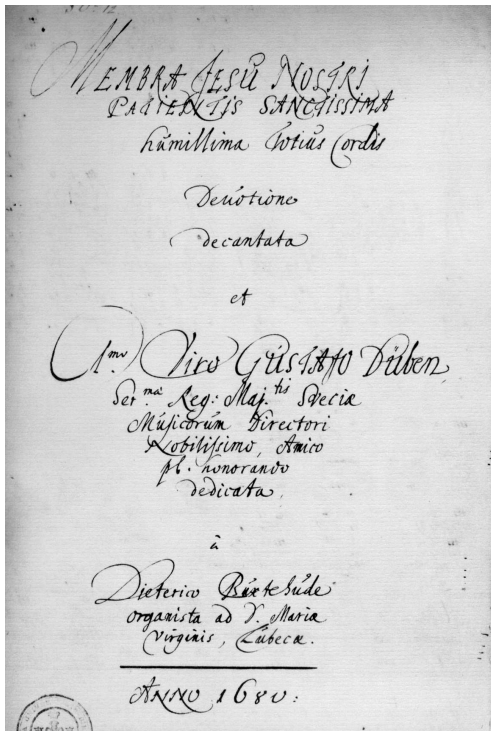 MEMBRA JESŨ NOSTRI
PATIENTIS SANCTISSIMA
humillima totius Cordis
Devotione
decantata
et
Clmo Viro GUSTAVO Düben
Ser.mæ Reg: Maj.tis Sveciæ
Musicorum Directori
Nobilissimo, Amico
pl. honorando
dedicata
à
Dieterico Buxtehude
organista ad S. Mariæ
Virginis, Lübecæ.
ANNO 1680: